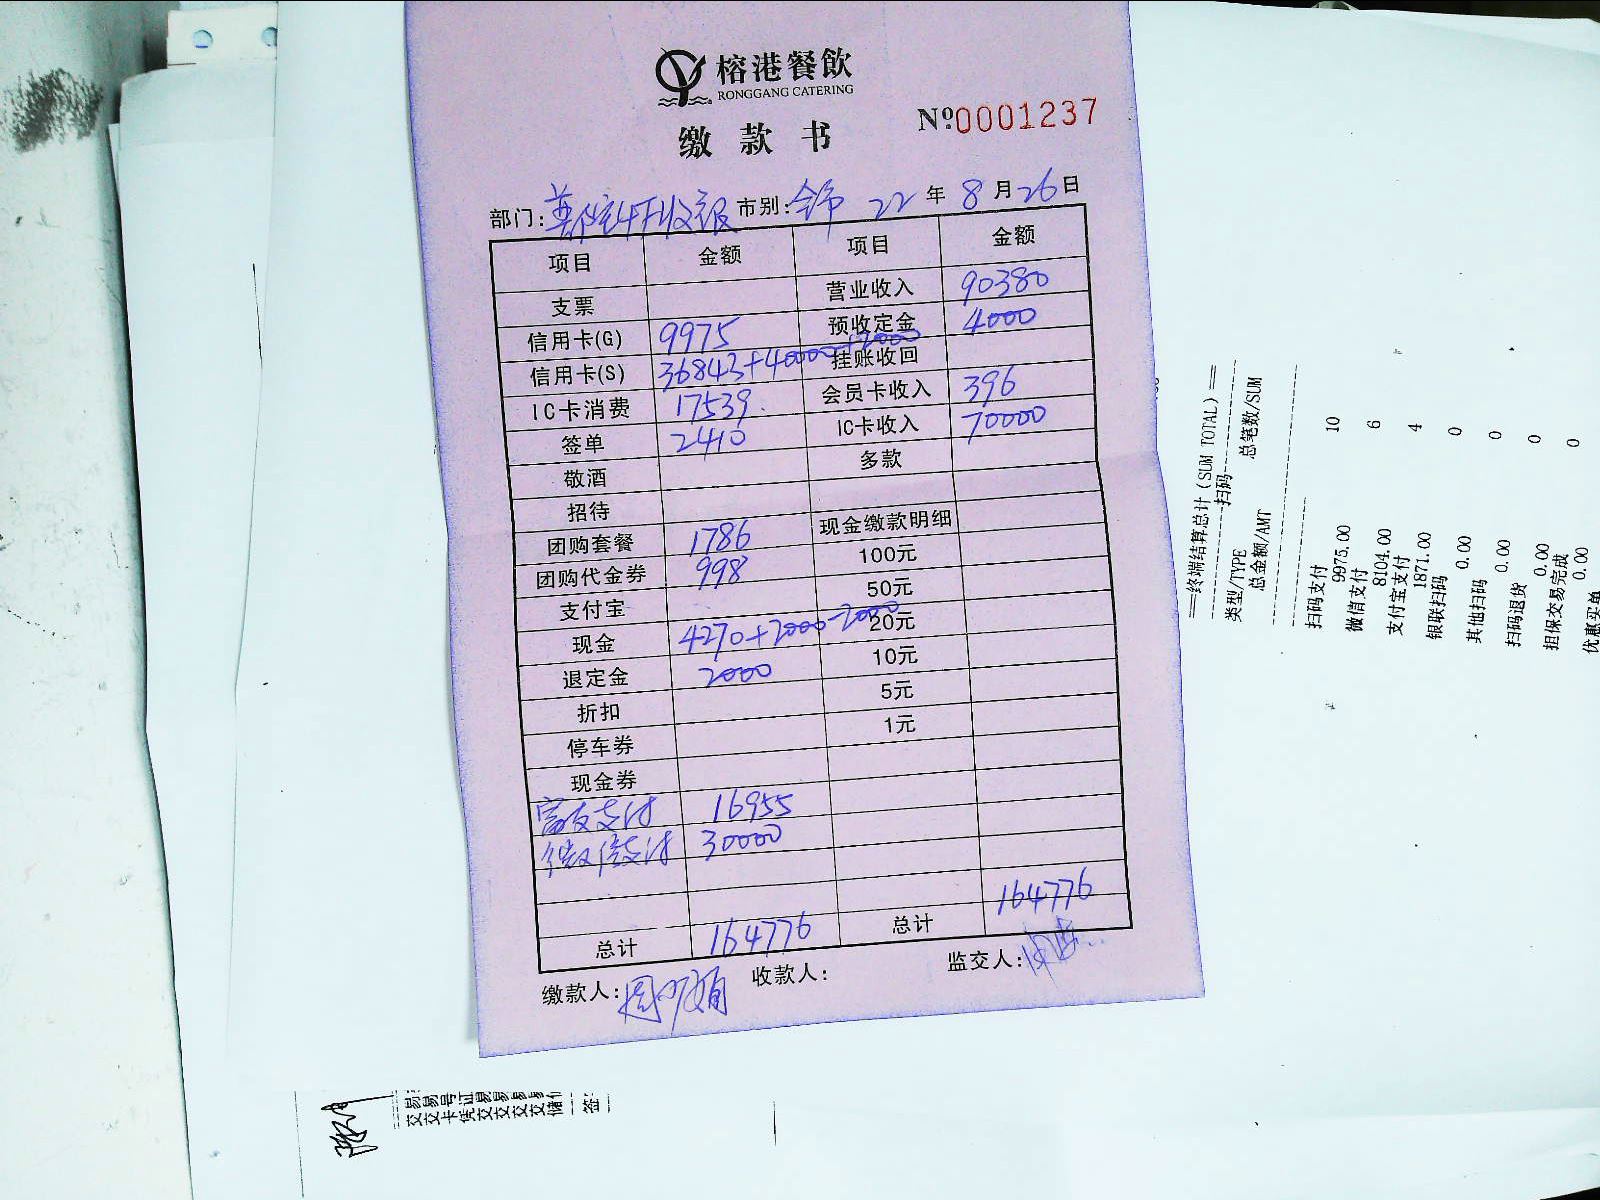 榕港餐飲
RONGGANG CATERING
缴款书
№0001237
部门: 市别: 22年8月26日
项目 金额 项目 金额
支票 营业收入 90380
信用卡(G) 9975 预收定金 4000
信用卡(S) 36843+40000+2000 挂账收回
IC卡消费 17539. 会员卡收入 396
签单 2410 IC卡收入 70000
敬酒 多款
招待
团购套餐 1786 现金缴款明细
团购代金券 998 100元
支付宝 50元
现金 4270+2000-2000 20元
退定金 2000 10元
折扣 5元
停车券 1元
现金券
富友支付 16955
微信支付 30000
总计 164776 总计 164776
缴款人: 收款人: 监交人:
==终端结算总计(SUM TOTAL)==
扫码
类型/TYPE 总笔数/SUM
总金额/AMT
扫码支付 10
9975.00
微信支付 6
8104.00
支付宝支付 4
1871.00
银联扫码 0
0.00
其他扫码 0
0.00
扫码退货 0
0.00
担保交易完成 0
0.00